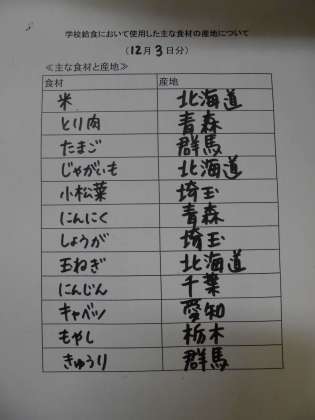 学校給食において使用した主な食材の産地について
(12月3日分)
≪主な食材と産地≫
食材 産地
米 北海道
とり肉 青森
たまご 群馬
じゃがいも 北海道
小松菜 埼玉
にんにく 青森
しょうが 埼玉
玉ねぎ 北海道
にんじん 千葉
キャベツ 愛知
もやし 栃木
きゅうり 群馬